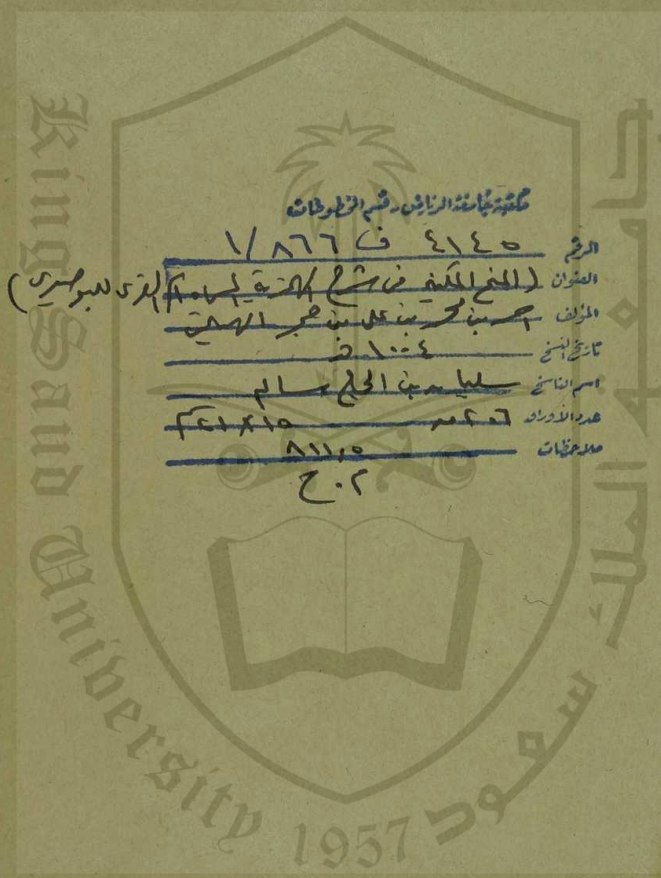 مكتبة جامعة الرياض - قسم المخطوطات
الرقم ٤١٤٥ ف ٨٦٦ / ١
العنوان (المنح المكية في شرح الهمزية المسماة أم القرى للبوصيري)
المؤلف أحمد بن محمد بن علي بن حجر الهيتمي
تاريخ النسخ ١٠٠٤ هـ
اسم الناسخ سليمان بن الحاج سالم
عدد الأوراق ٢٠٦
ملاحظات ٨١١,٥
م. ح
King Saud University 1957
جامعة الملك سعود